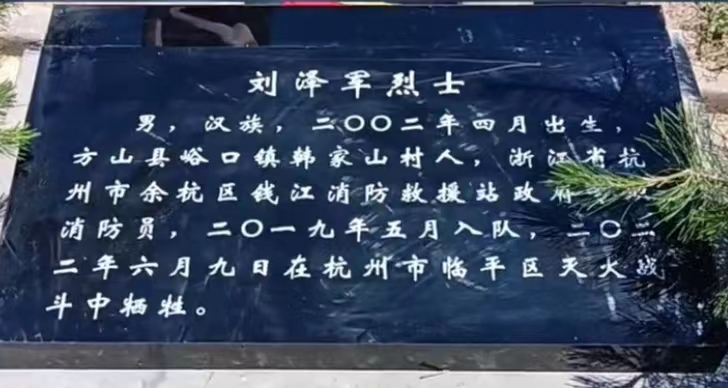 刘泽军烈士
男，汉族，二〇〇二年四月出生，
方山县峪口镇韩家山村人，浙江省杭
州市余杭区钱江消防救援站政府
消防员，二〇一九年五月入队，二〇二
二年六月九日在杭州市临平区灭火战
斗中牺牲。